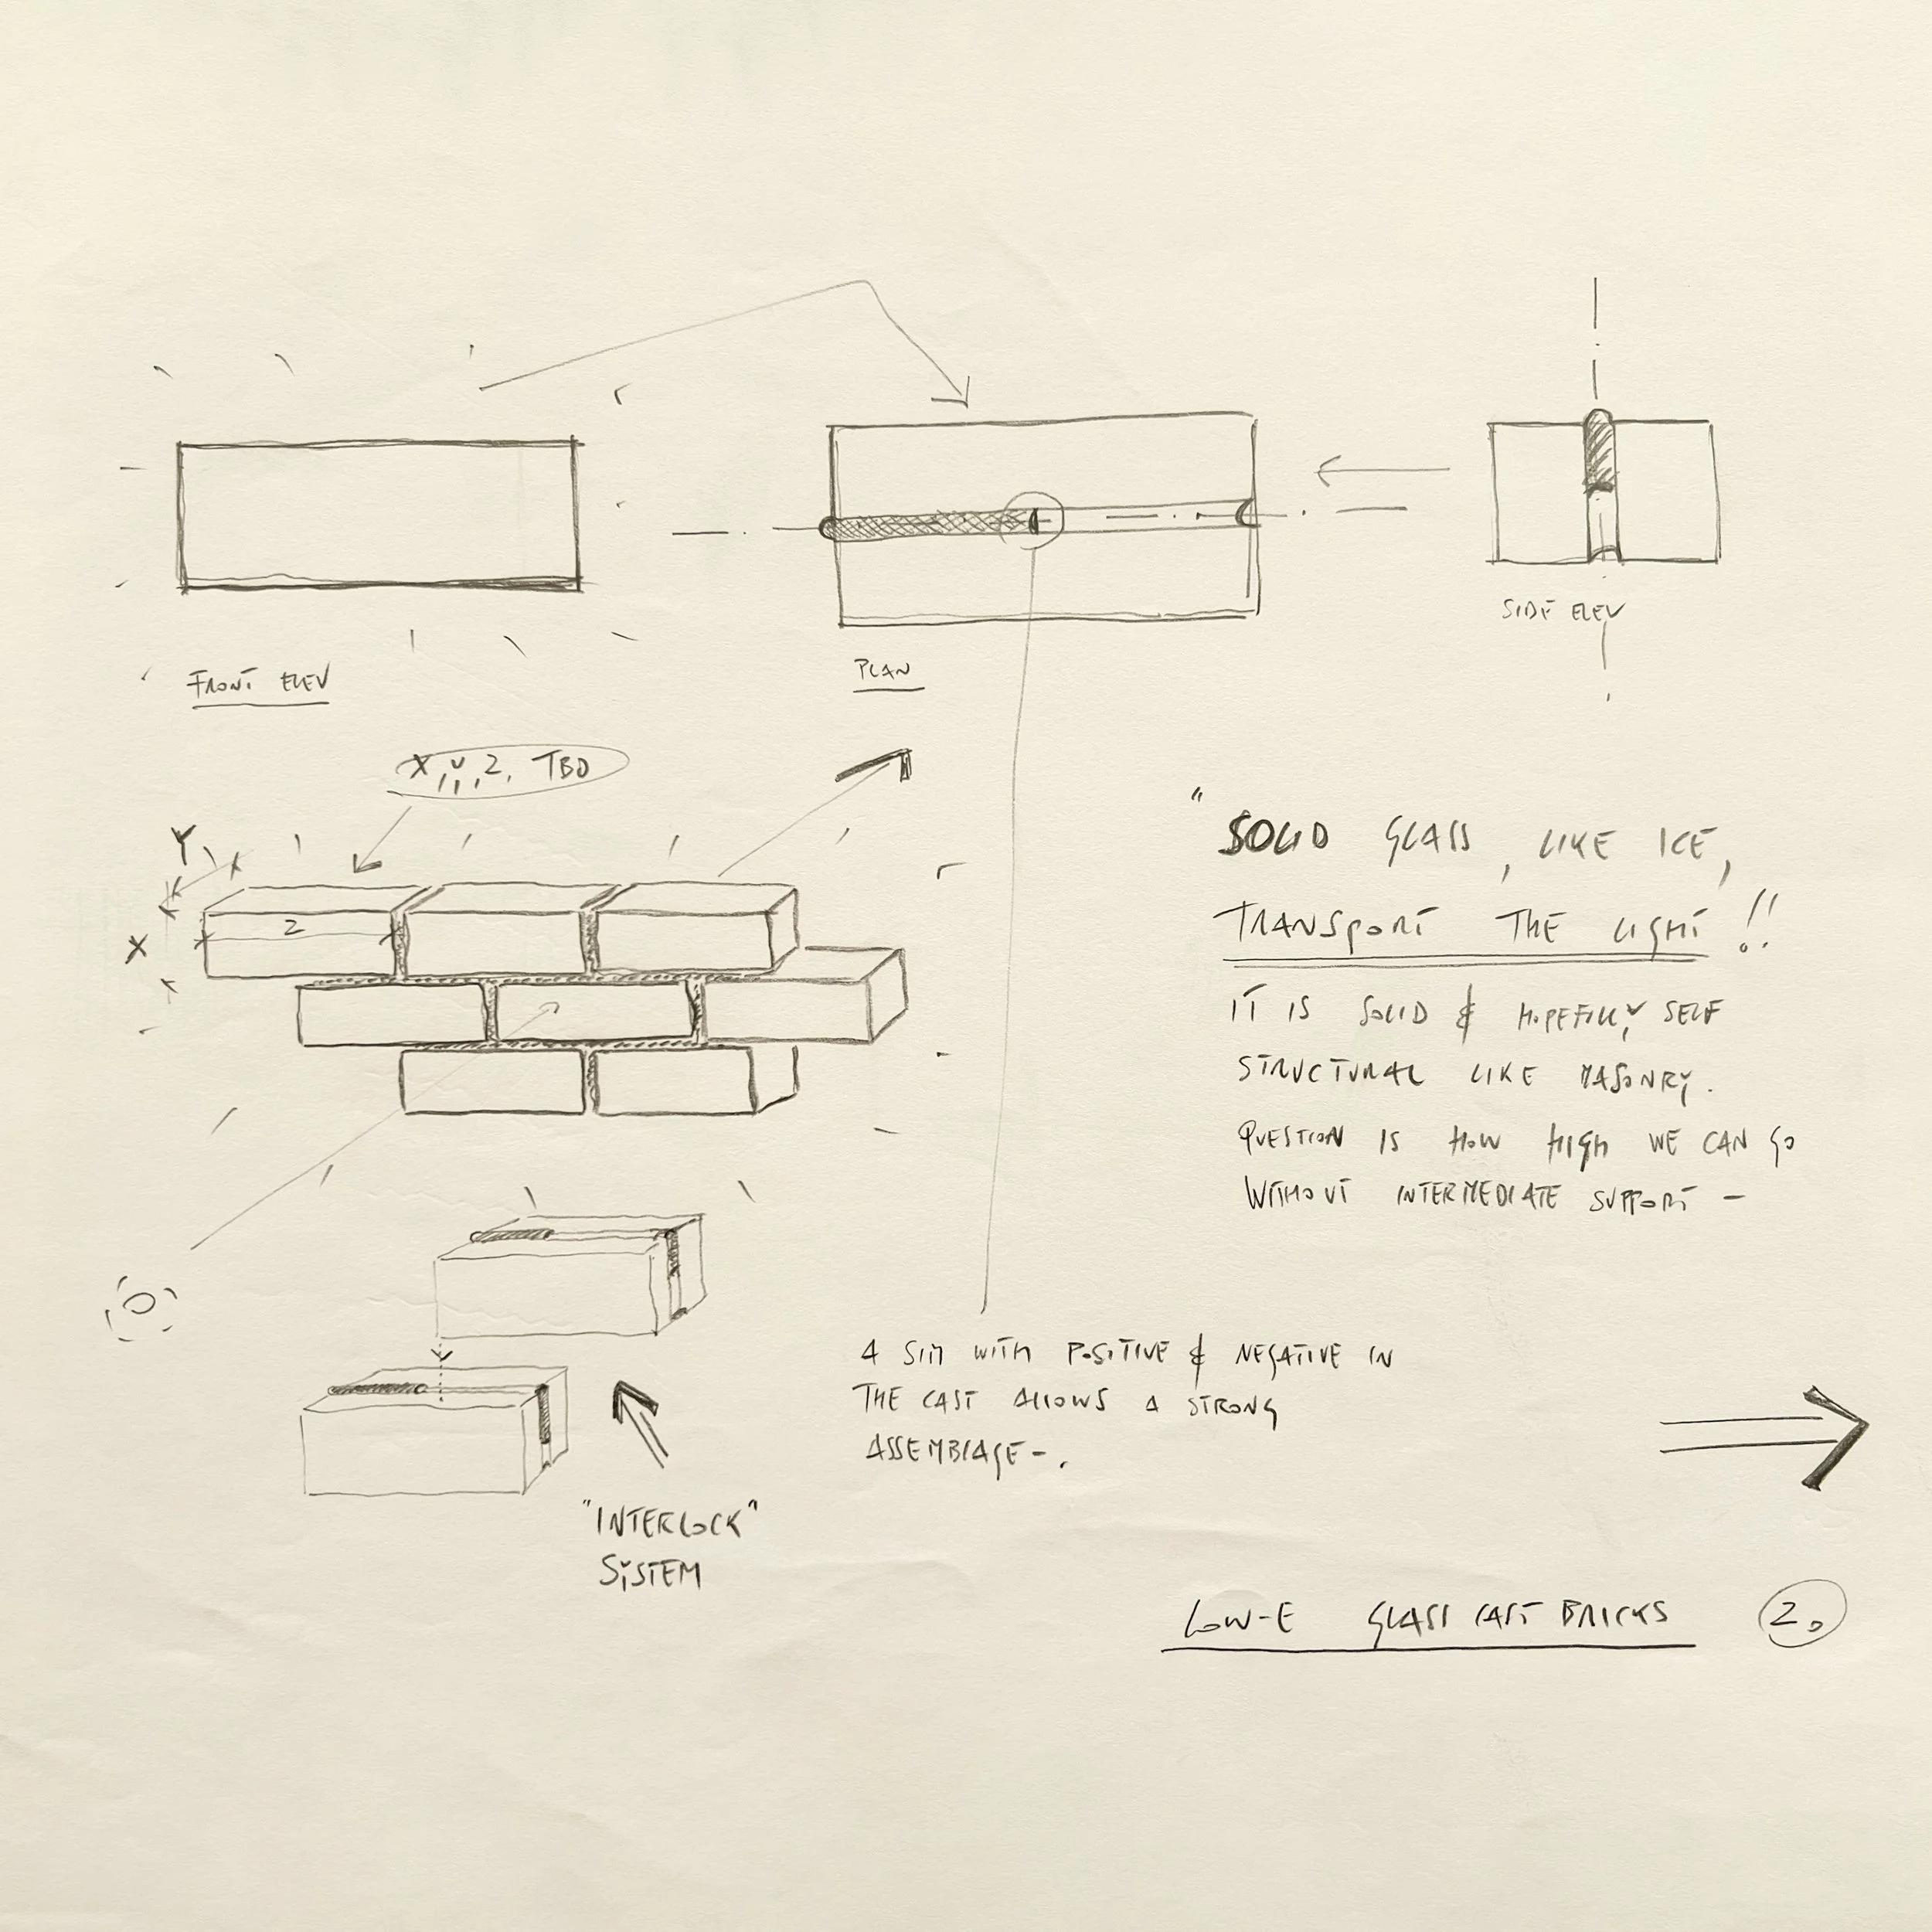 FRONT ELEV
PLAN
SIDE ELEV
X, Y, Z, TBD
Y
X
Z
"SOLID GLASS, LIKE ICE,
TRANSPORT THE LIGHT!!
IT IS SOLID & HOPEFULLY SELF
STRUCTURAL LIKE MASONRY.
QUESTION IS HOW HIGH WE CAN GO
WITHOUT INTERMEDIATE SUPPORT -
A SIM WITH POSITIVE & NEGATIVE IN
THE CAST ALLOWS A STRONG
ASSEMBLAGE -.
"INTERLOCK"
SYSTEM
LOW-E GLASS CAST BRICKS
2.